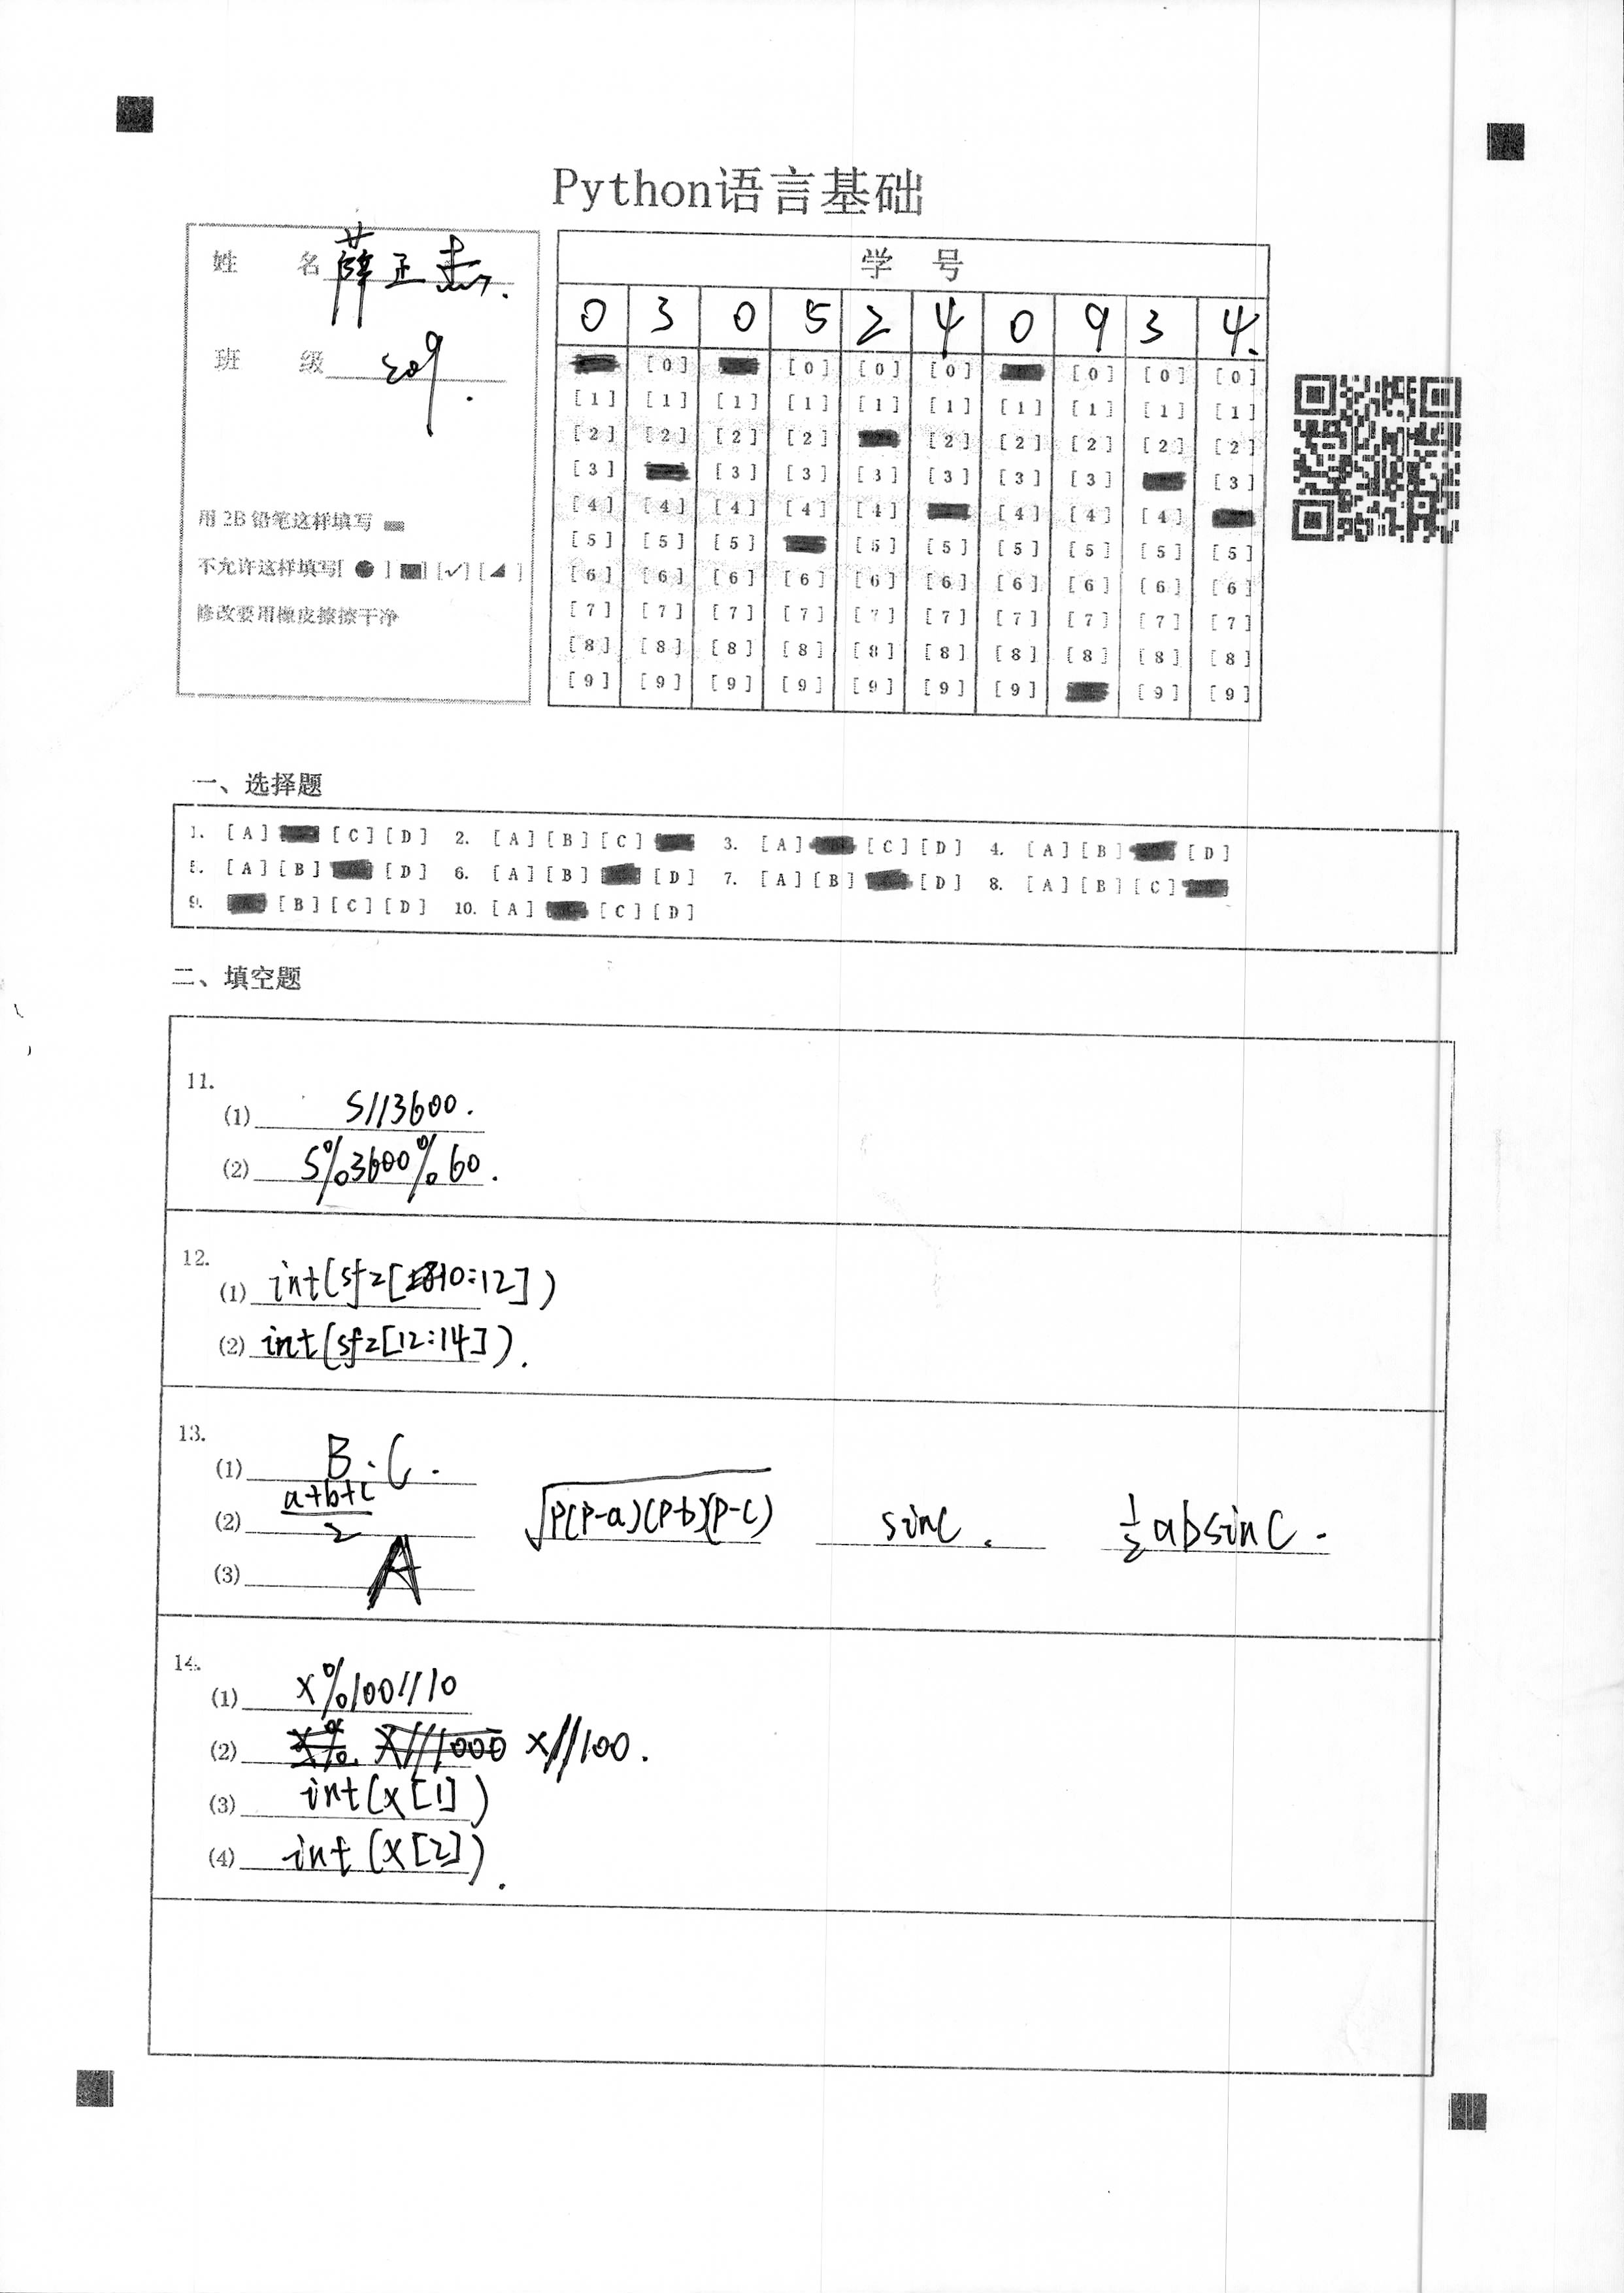 Python语言基础
姓 名 薛正杰.
班 级 209.
用 2B 铅笔这样填写
不允许这样填写[ ● ] [■] [✓] [◢ ]
修改要用橡皮擦擦干净
学 号
0 3 0 5 2 4 0 9 3 4.
[0] [0] [0] [0] [0] [0] [0]
[1] [1] [1] [1] [1] [1] [1] [1] [1] [1]
[2] [2] [2] [2] [2] [2] [2] [2] [2]
[3] [3] [3] [3] [3] [3] [3] [3]
[4] [4] [4] [4] [4] [4] [4] [4]
[5] [5] [5] [5] [5] [5] [5] [5] [5]
[6] [6] [6] [6] [6] [6] [6] [6] [6] [6]
[7] [7] [7] [7] [7] [7] [7] [7] [7] [7]
[8] [8] [8] [8] [8] [8] [8] [8] [8] [8]
[9] [9] [9] [9] [9] [9] [9] [9] [9]
一、选择题
1. [A] [C] [D] 2. [A] [B] [C] 3. [A] [C] [D] 4. [A] [B] [D]
5. [A] [B] [D] 6. [A] [B] [D] 7. [A] [B] [D] 8. [A] [B] [C]
9. [B] [C] [D] 10. [A] [C] [D]
二、填空题
11.
(1) S//3600.
(2) S%3600%60.
12.
(1) int(sfz[10:12])
(2) int(sfz[12:14]).
13.
(1) B.C.
(2) (a+b+c)/2 √p(p-a)(p-b)(p-c) sinC. ½absinC.
(3) A
14.
(1) x%100//10
(2) x//100.
(3) int(x[1])
(4) int(x[2]).